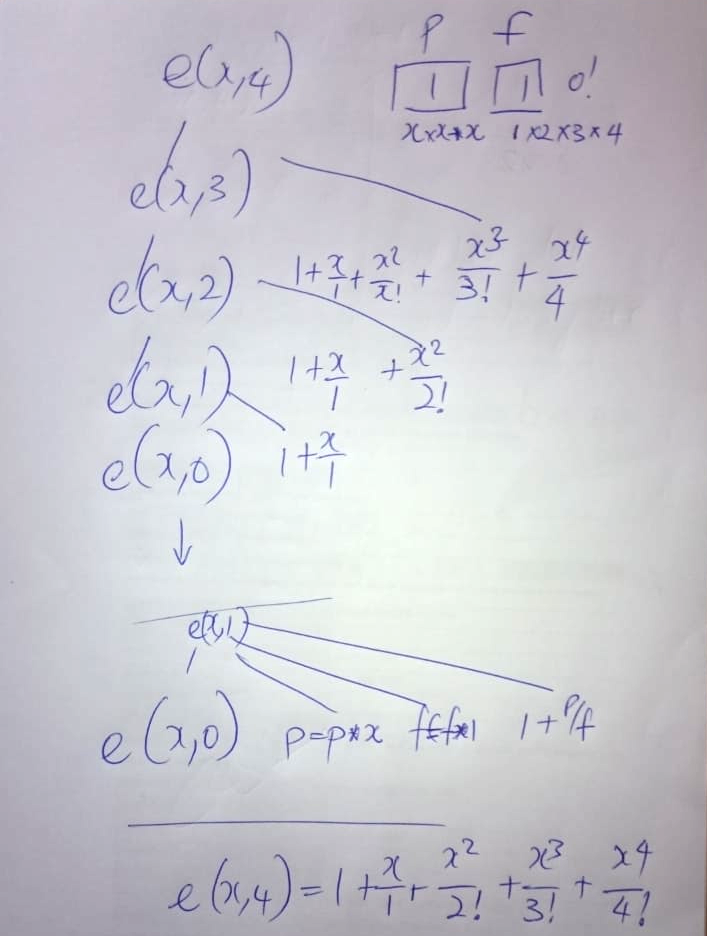 p f
e(x,4) 1 1 0!
x*x*x 1×2×3×4
e(x,3)
e(x,2) 1+x/1+x²/x!+x³/3!+x⁴/4
e(x,1) 1+x/1 +x²/2!
e(x,0) 1+x/1
↓
e(x,1)
e(x,0) p=p*x f=f*1 1+p/f
e(x,4)=1+x/1+x²/2!+x³/3!+x⁴/4!